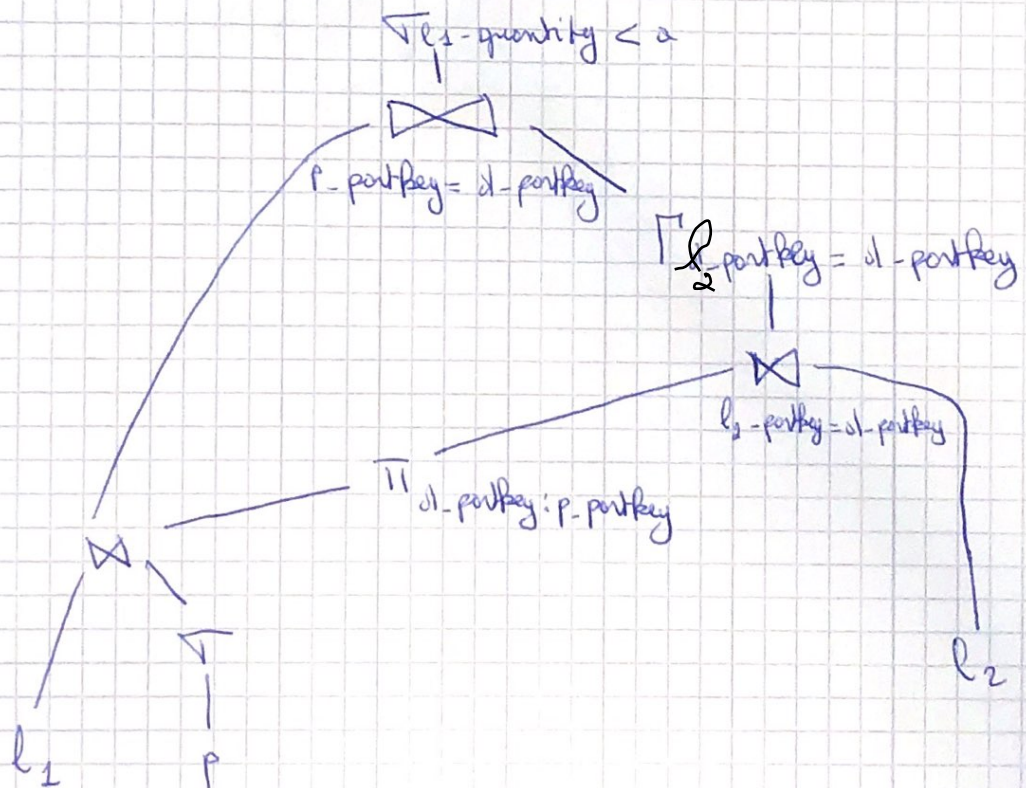 σ l1-quantity < a
⋈
p-partkey = d-partkey
Γ l2-partkey = d-partkey
⋈
l2-partkey = d-partkey
Π d-partkey : p-partkey
⋈
σ
l2
l1
p